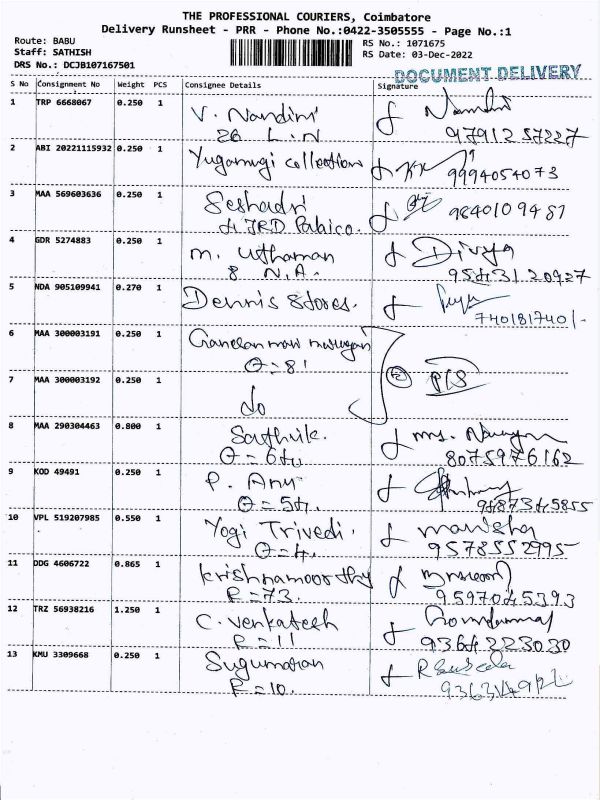 THE PROFESSIONAL COURIERS, Coimbatore
Delivery Runsheet - PRR - Phone No.:0422-3505555 - Page No.:1
Route: BABU
Staff: SATHISH
DRS No.: DCJB107167501
RS No.: 1071675
RS Date: 03-Dec-2022
DOCUMENT DELIVERY
S No Consignment No Weight PCS Consignee Details Signature
1 TRP 6668067 0.250 1 V. Nandini Nandini
26 L.N 9791257227
2 ABI 20221115932 0.250 1 Yugamugi collection 9994054073
3 MAA 569603636 0.250 1 Seshadri 9840109487
4 JRD
4 GDR 5274883 0.250 1 m. uthaman Divya
8 N.A. 9543120927
5 NDA 905109941 0.270 1 Dennis Stores.
7401817401-
6 MAA 300003191 0.250 1
O=81
7 MAA 300003192 0.250 1
do
8 MAA 290304463 0.800 1 Sathvik. mrs.
O=64 8075976162
9 KOD 49491 0.250 1 P. Anu
O=54. 9487345855
10 VPL 519207985 0.550 1 Yogi Trivedi. manisha
O=4. 9578552995
11 DDG 4606722 0.865 1 krishnamoorthy
R=73. 9597045393
12 TRZ 56938216 1.250 1 C. venkatesh
R=11 9364223030
13 KMU 3309668 0.250 1 Sugumaran
R=10.